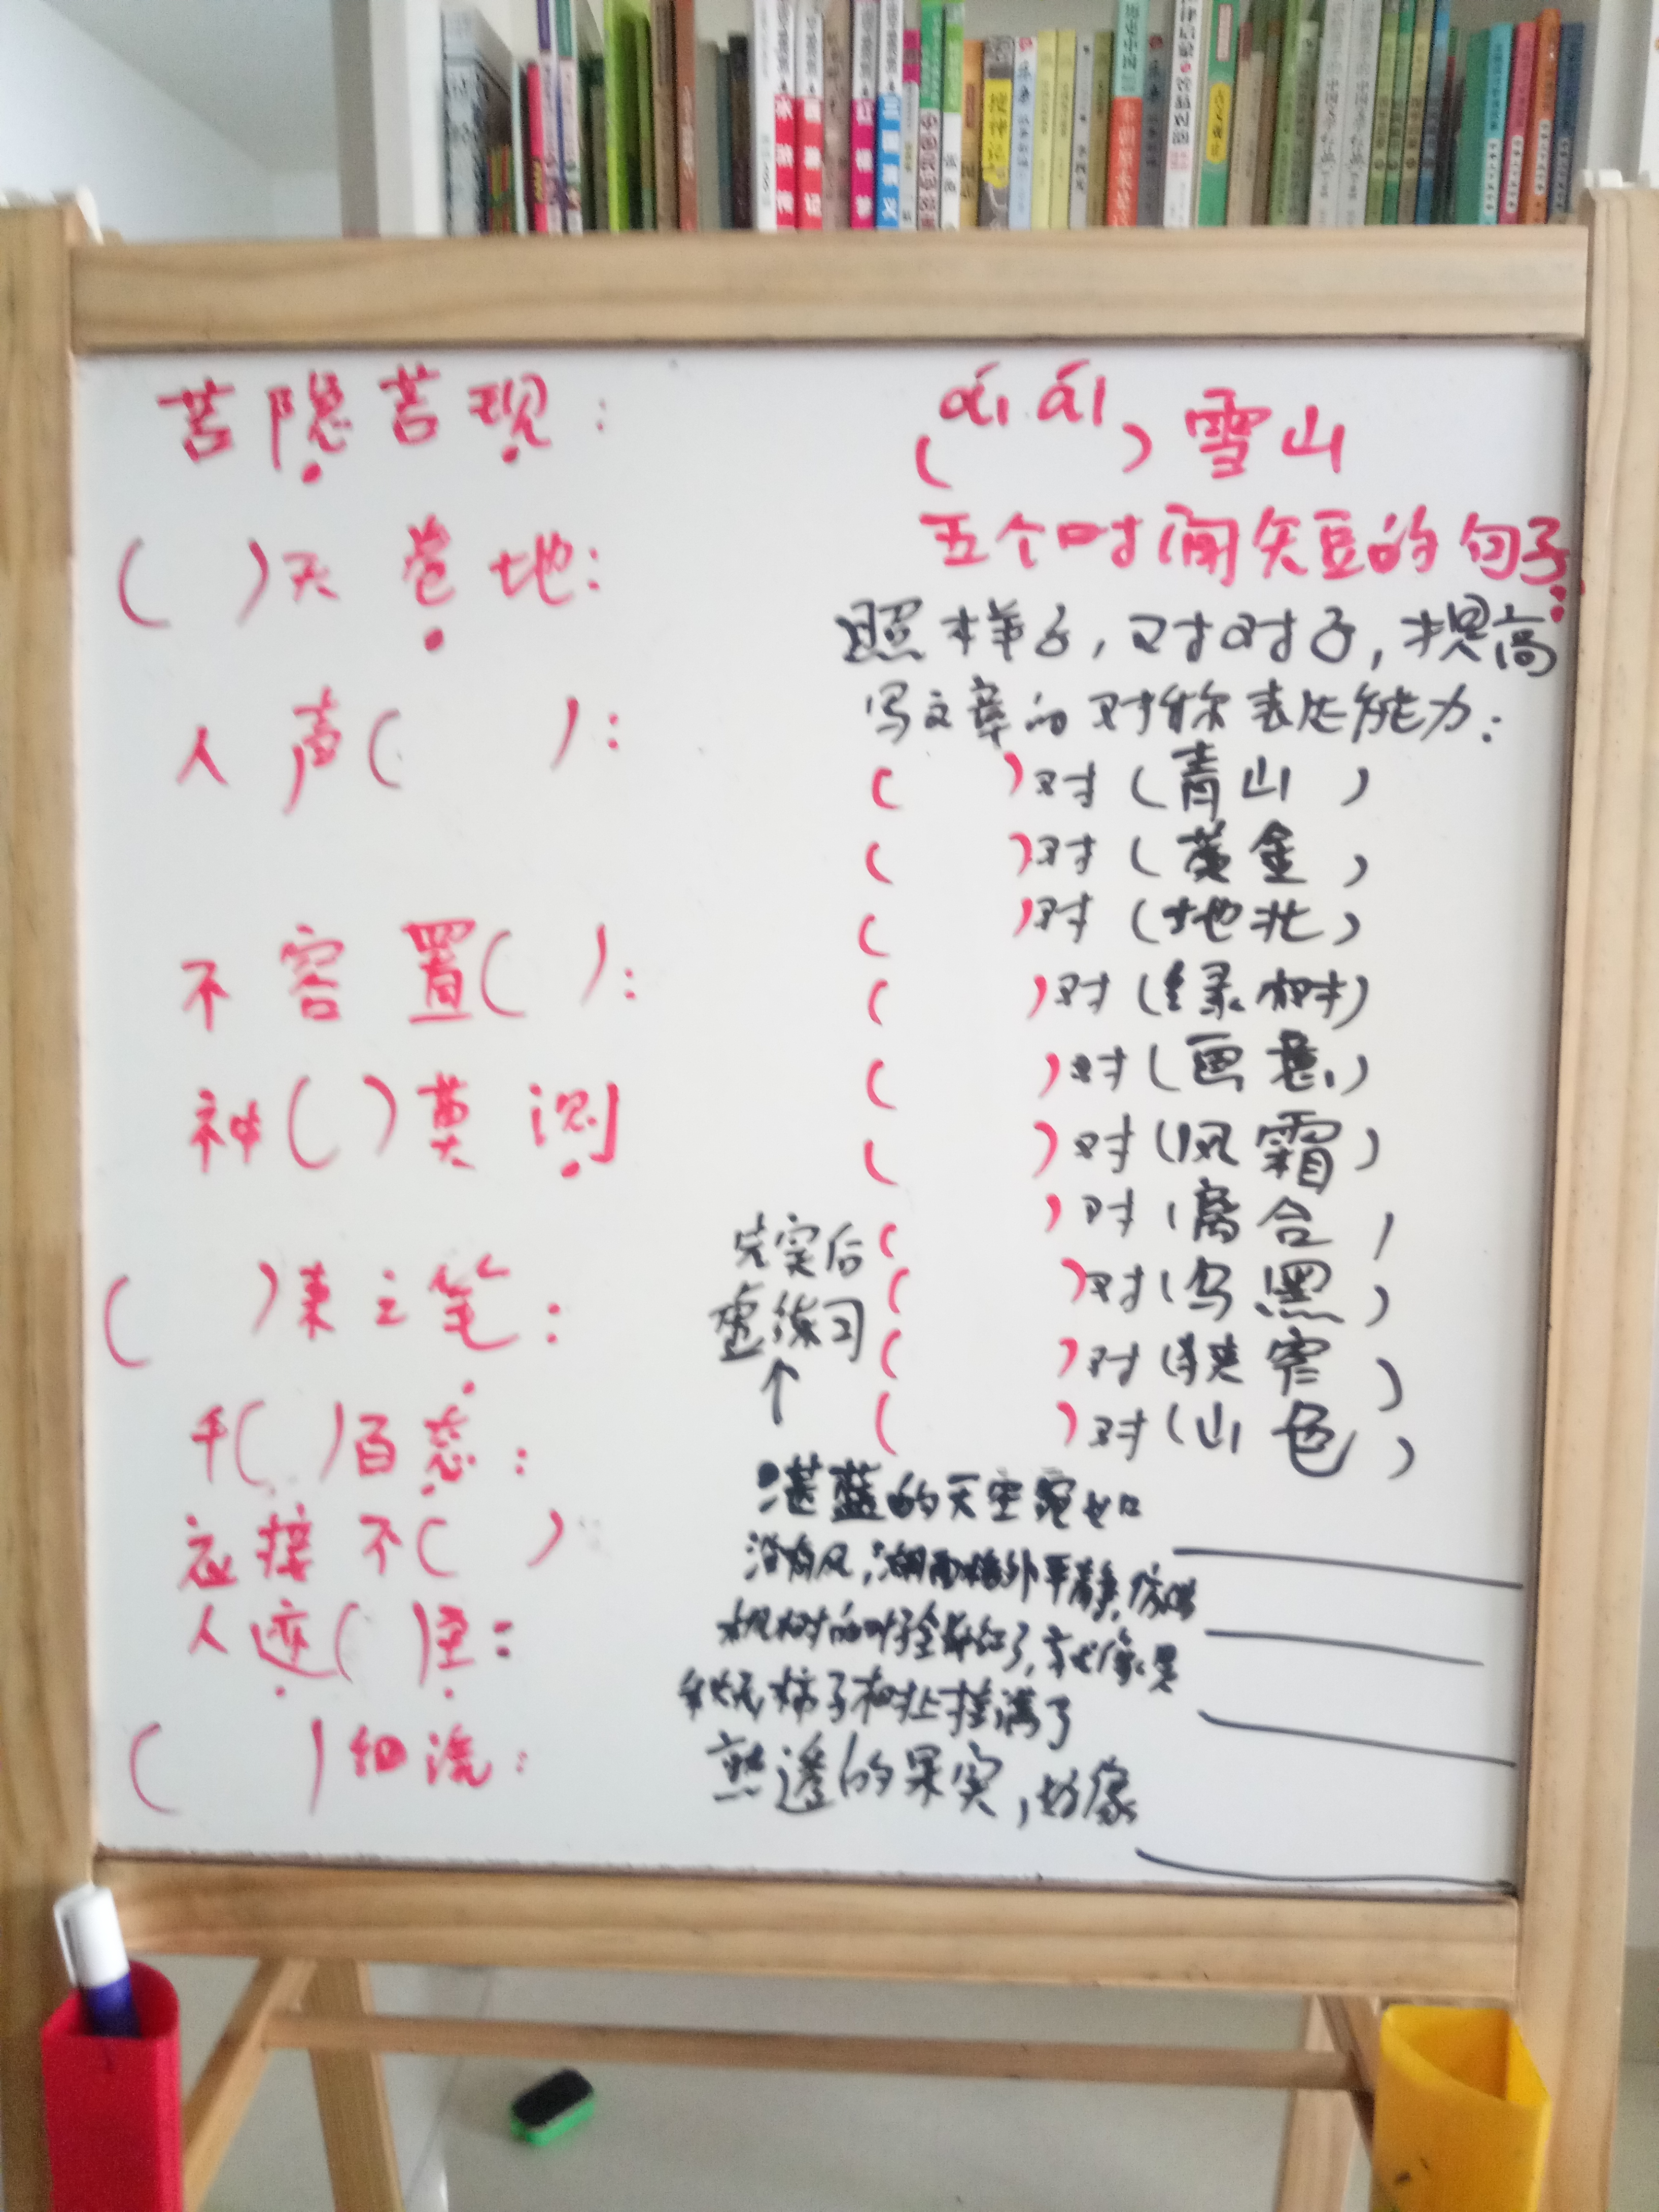 水浒传
西游记
红楼梦
三国演义
若隐若现：
(  )天卷地：
人声(  )：
不容置(  )：
神(  )莫测
(  )来之笔：
千(  )百态：
应接不(  )
人迹(  )至：
(  )细流：
ái ái
(  )雪山
五个时间短的句子：
照样子，对对子，提高
写文章的对称表达能力：
(  )对(青山)
(  )对(黄金)
(  )对(地北)
(  )对(绿树)
(  )对(画意)
(  )对(风霜)
(  )对(离合)
(  )对(乌黑)
(  )对(狭窄)
(  )对(山色)
完实后
虚练习
↑
湛蓝的天空宛如
没有风，湖面格外平静，仿佛
枫树的叶子全都红了，就像是
秋天柿子树上挂满了
熟透的果实，好像